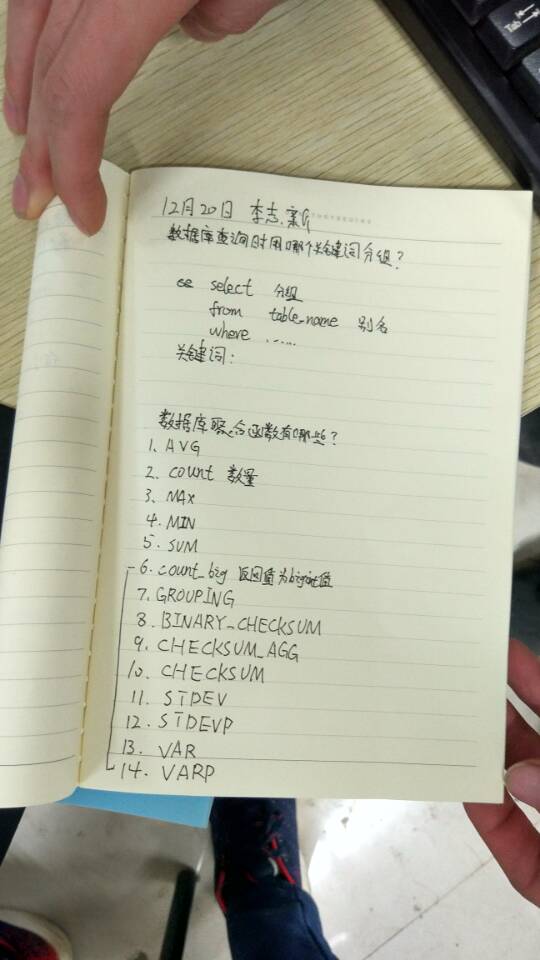 Tab
12月20日 李志
数据库查询时用哪个关键词分组?
select 分组
from table_name 别名
where ......
关键词:
数据库聚合函数有哪些?
1. AVG
2. count 数量
3. MAX
4. MIN
5. SUM
6. count_big 返回值为bigint值
7. GROUPING
8. BINARY_CHECKSUM
9. CHECKSUM_AGG
10. CHECKSUM
11. STDEV
12. STDEVP
13. VAR
14. VARP